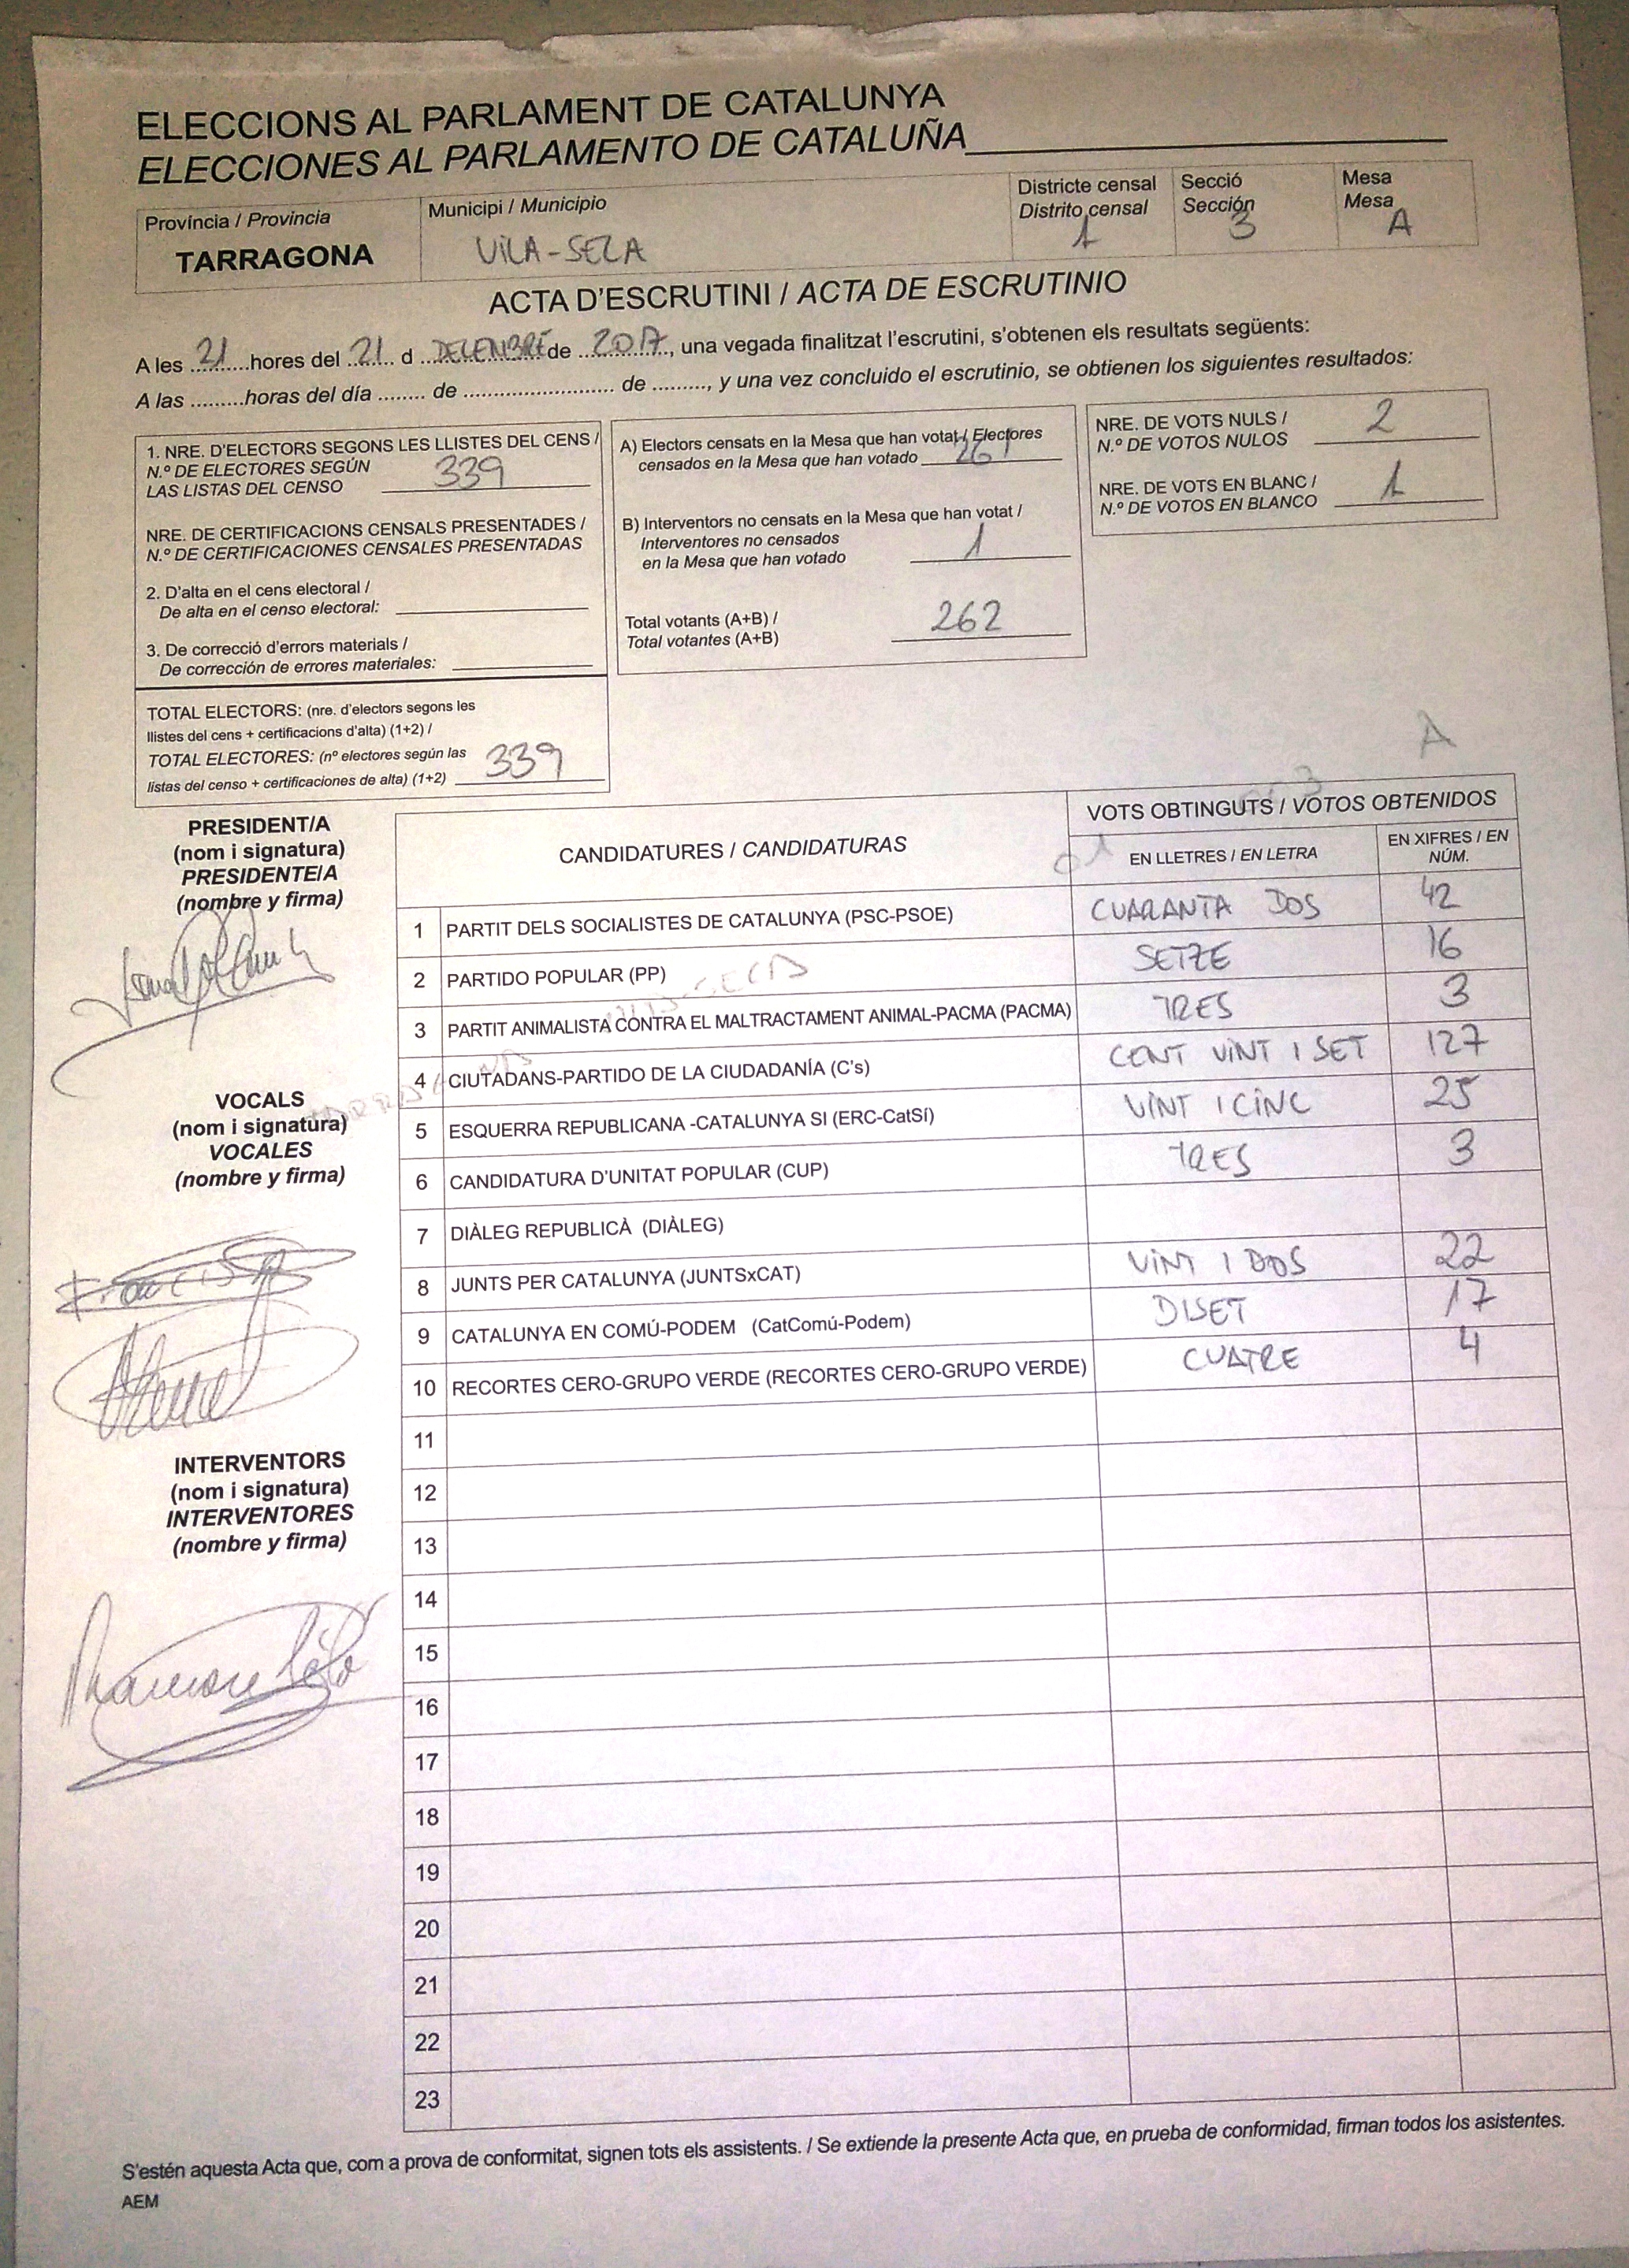 ELECCIONS AL PARLAMENT DE CATALUNYA
ELECCIONES AL PARLAMENTO DE CATALUÑA
Província / Provincia
TARRAGONA
Municipi / Municipio
VILA-SECA
Districte censal
Distrito censal
1
Secció
Sección
3
Mesa
Mesa
A
ACTA D'ESCRUTINI / ACTA DE ESCRUTINIO
A les 21 hores del 21 d DECEMBRE de 2017, una vegada finalitzat l'escrutini, s'obtenen els resultats següents:
A las .........horas del día ........ de .......................... de ........., y una vez concluido el escrutinio, se obtienen los siguientes resultados:
1. NRE. D'ELECTORS SEGONS LES LLISTES DEL CENS /
N.º DE ELECTORES SEGÚN
LAS LISTAS DEL CENSO 339
NRE. DE CERTIFICACIONS CENSALS PRESENTADES /
N.º DE CERTIFICACIONES CENSALES PRESENTADAS
2. D'alta en el cens electoral /
De alta en el censo electoral:
3. De correcció d'errors materials /
De corrección de errores materiales:
TOTAL ELECTORS: (nre. d'electors segons les
llistes del cens + certificacions d'alta) (1+2) /
TOTAL ELECTORES: (nº electores según las
listas del censo + certificaciones de alta) (1+2) 339
A) Electors censats en la Mesa que han votat / Electores
censados en la Mesa que han votado 261
B) Interventors no censats en la Mesa que han votat /
Interventores no censados
en la Mesa que han votado 1
Total votants (A+B) /
Total votantes (A+B) 262
NRE. DE VOTS NULS /
N.º DE VOTOS NULOS 2
NRE. DE VOTS EN BLANC /
N.º DE VOTOS EN BLANCO 1
A
PRESIDENT/A
(nom i signatura)
PRESIDENTE/A
(nombre y firma)
VOCALS
(nom i signatura)
VOCALES
(nombre y firma)
INTERVENTORS
(nom i signatura)
INTERVENTORES
(nombre y firma)
CANDIDATURES / CANDIDATURAS
VOTS OBTINGUTS / VOTOS OBTENIDOS
EN LLETRES / EN LETRA
EN XIFRES / EN
NÚM.
1 PARTIT DELS SOCIALISTES DE CATALUNYA (PSC-PSOE) CUARANTA DOS 42
2 PARTIDO POPULAR (PP) SETZE 16
3 PARTIT ANIMALISTA CONTRA EL MALTRACTAMENT ANIMAL-PACMA (PACMA) TRES 3
4 CIUTADANS-PARTIDO DE LA CIUDADANÍA (C's) CENT VINT I SET 127
5 ESQUERRA REPUBLICANA -CATALUNYA SI (ERC-CatSí) VINT I CINC 25
6 CANDIDATURA D'UNITAT POPULAR (CUP) TRES 3
7 DIÀLEG REPUBLICÀ (DIÀLEG)
8 JUNTS PER CATALUNYA (JUNTSxCAT) VINT I DOS 22
9 CATALUNYA EN COMÚ-PODEM (CatComú-Podem) DISET 17
10 RECORTES CERO-GRUPO VERDE (RECORTES CERO-GRUPO VERDE) CUATRE 4
11
12
13
14
15
16
17
18
19
20
21
22
23
S'estén aquesta Acta que, com a prova de conformitat, signen tots els assistents. / Se extiende la presente Acta que, en prueba de conformidad, firman todos los asistentes.
AEM